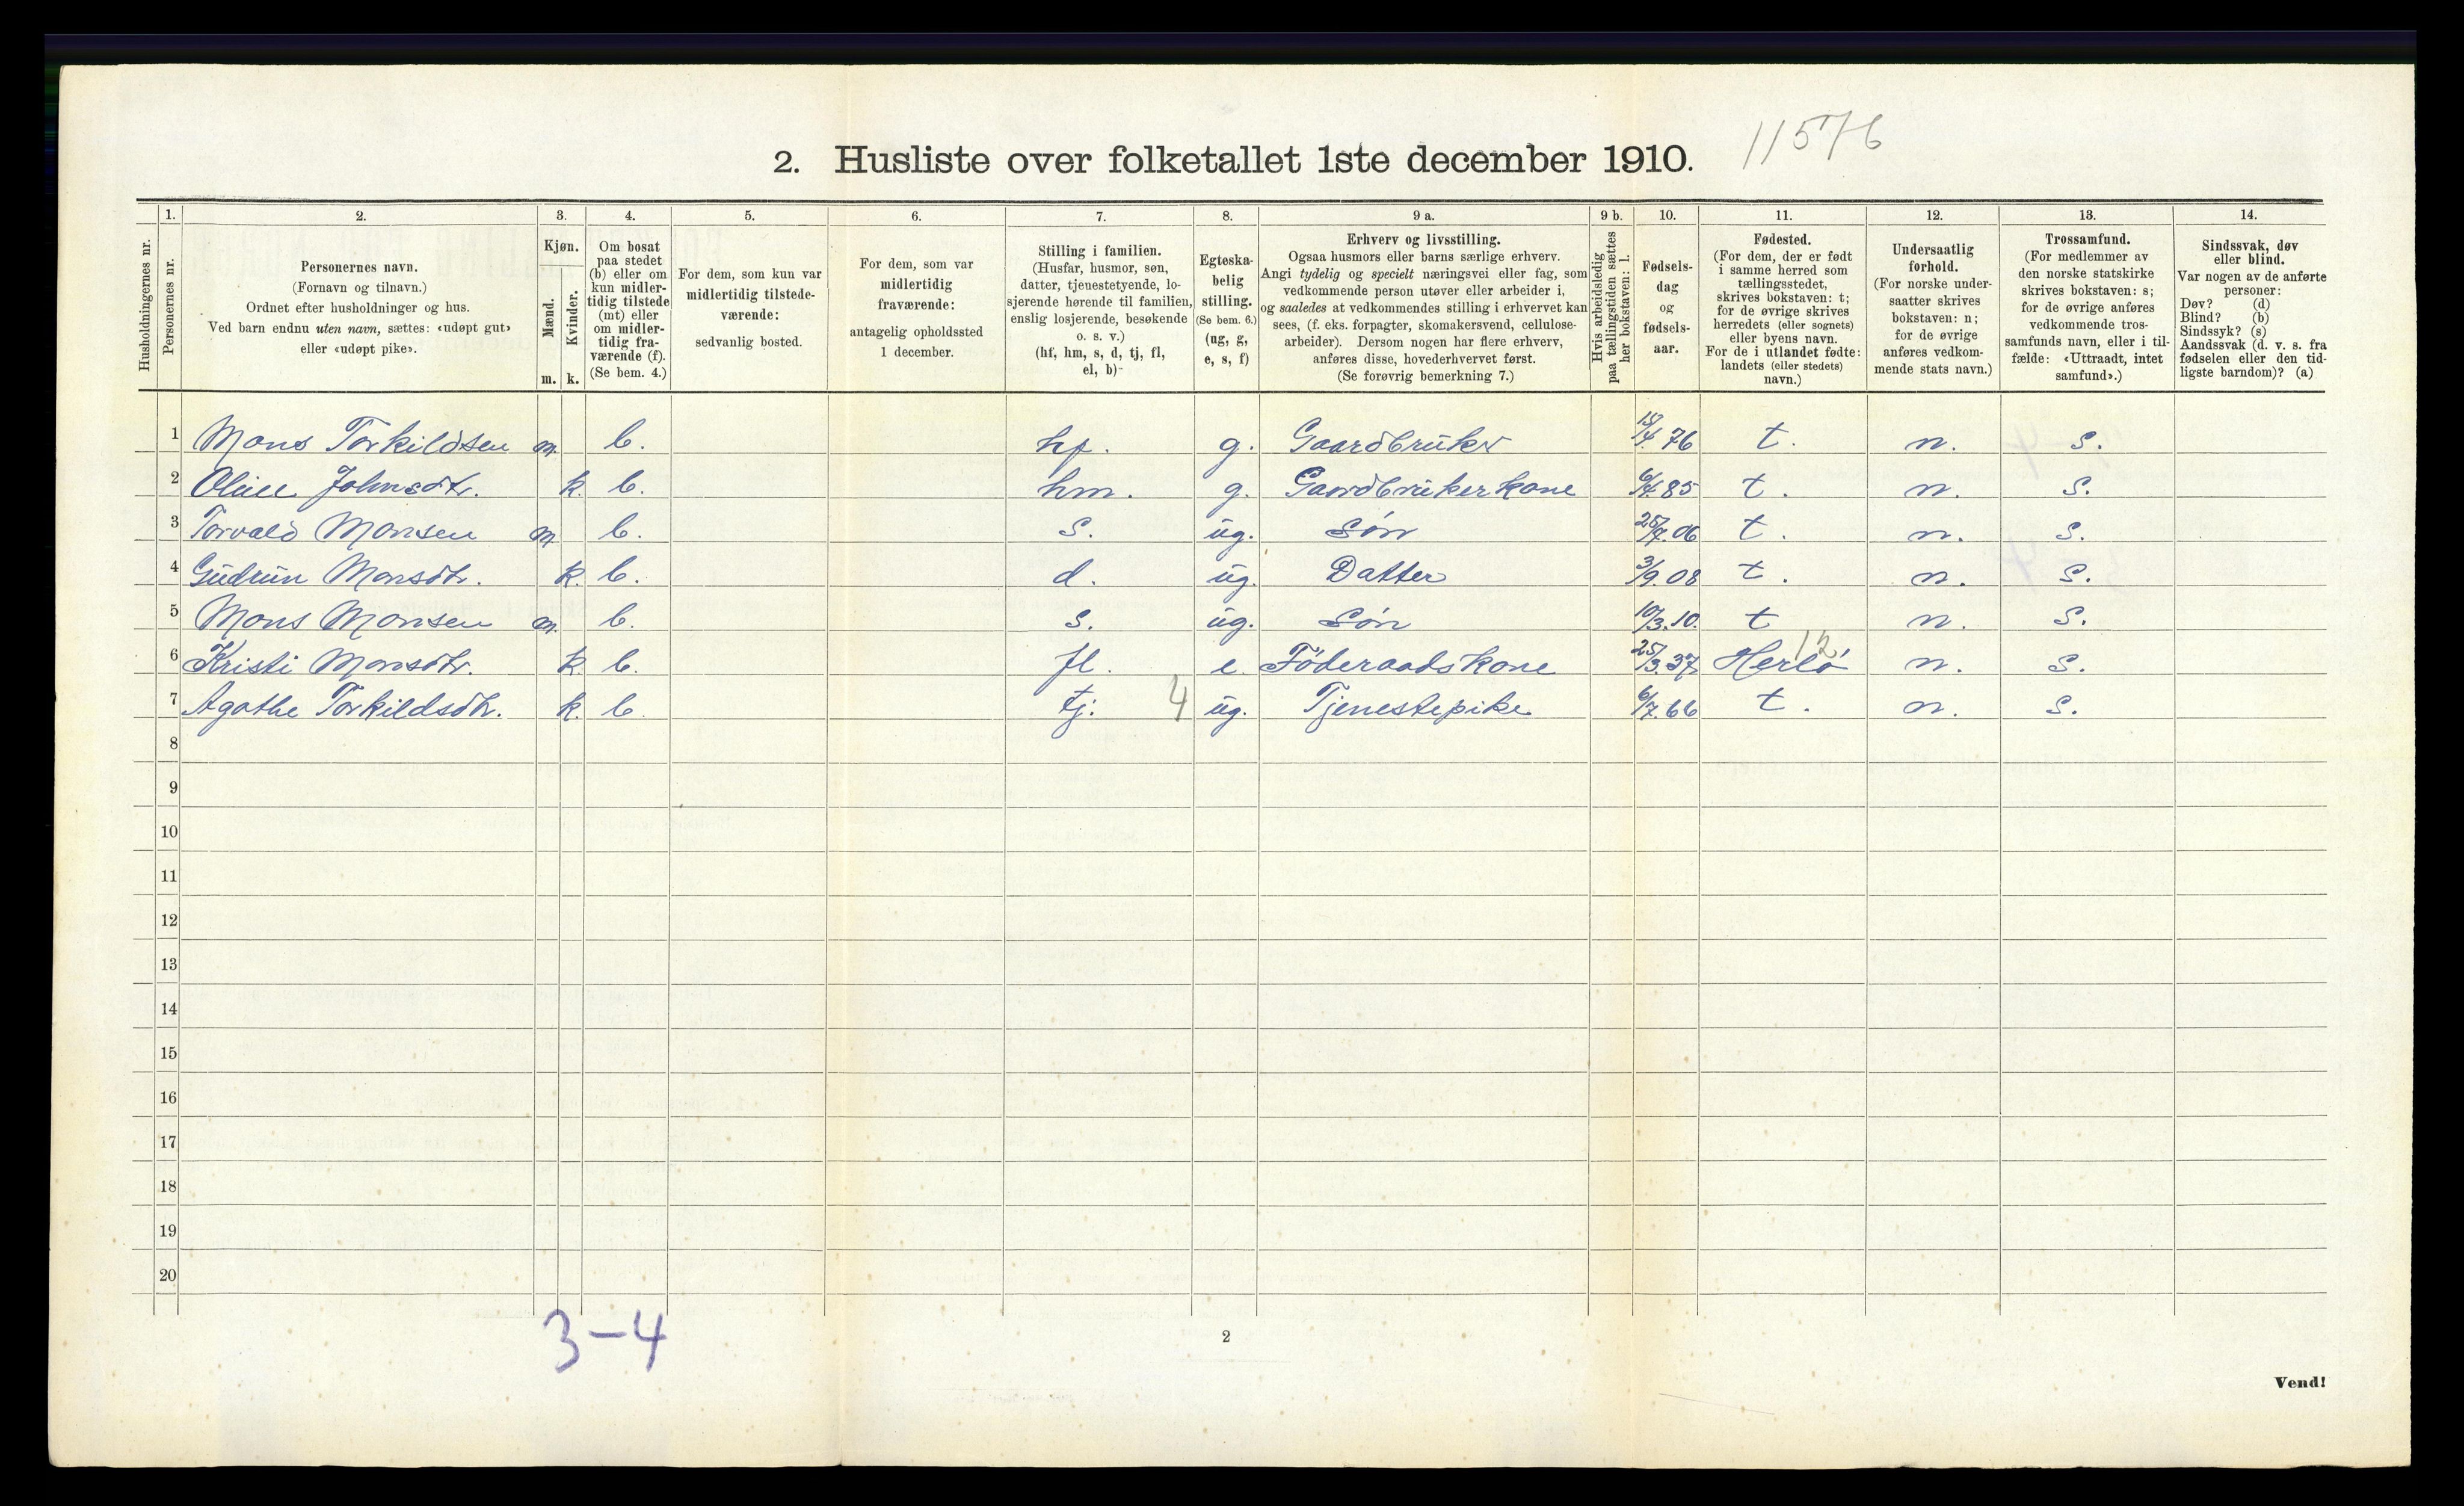 11576
2. Husliste over folketallet 1ste december 1910.
1. 2. 3. 4. 5. 6. 7. 8. 9 a. 9 b. 10. 11. 12. 13. 14.
Husholdningernes nr.
Personernes nr.
Personernes navn.
(Fornavn og tilnavn.)
Ordnet efter husholdninger og hus.
Ved barn endnu uten navn, sættes: «udøpt gut»
eller «udøpt pike».
Kjøn.
Mænd.
Kvinder.
m. k.
Om bosat
paa stedet
(b) eller om
kun midler-
tidig tilstede
(mt) eller
om midler-
tidig fra-
værende (f).
(Se bem. 4.)
For dem, som kun var
midlertidig tilstede-
værende:
sedvanlig bosted.
For dem, som var
midlertidig
fraværende:
antagelig opholdssted
1 december.
Stilling i familien.
(Husfar, husmor, søn,
datter, tjenestetyende, lo-
sjerende hørende til familien,
enslig losjerende, besøkende
o. s. v.)
(hf, hm, s, d, tj, fl,
el, b)-
Egteska-
belig
stilling.
(Se bem. 6.)
(ug, g,
e, s, f)
Erhverv og livsstilling.
Ogsaa husmors eller barns særlige erhverv.
Angi tydelig og specielt næringsvei eller fag, som
vedkommende person utøver eller arbeider i,
og saaledes at vedkommendes stilling i erhvervet kan
sees, (f. eks. forpagter, skomakersvend, cellulose-
arbeider). Dersom nogen har flere erhverv,
anføres disse, hovederhvervet først.
(Se forøvrig bemerkning 7.)
Hvis arbeidsledig
paa tællingstiden sættes
her bokstaven: l.
Fødsels-
dag
og
fødsels-
aar.
Fødested.
(For dem, der er født
i samme herred som
tællingsstedet,
skrives bokstaven: t;
for de øvrige skrives
herredets (eller sognets)
eller byens navn.
For de i utlandet fødte:
landets (eller stedets)
navn.)
Undersaatlig
forhold.
(For norske under-
saatter skrives
bokstaven: n;
for de øvrige
anføres vedkom-
mende stats navn.)
Trossamfund.
(For medlemmer av
den norske statskirke
skrives bokstaven: s;
for de øvrige anføres
vedkommende tros-
samfunds navn, eller i til-
fælde: «Uttraadt, intet
samfund».)
Sindssvak, døv
eller blind.
Var nogen av de anførte
personer:
Døv? (d)
Blind? (b)
Sindssyk? (s)
Aandssvak (d. v. s. fra
fødselen eller den tid-
ligste barndom)? (a)
1 Mons Torkildsen m. b. hf. g. Gaardbruker 15/4. 76 t. n. s.
2 Johnsdtr. k. b. hm. g. Gaardbrukerkone 6/4. 85 t. n. s.
3 Torvald Monsen m. b. s. ug. Søn 25/7. 06 t. n. s.
4 Gudrun Monsdtr. k. b. d. ug. Datter 3/9. 08 t. n. s.
5 Mons Monsen m. b. s. ug. Søn 10/3. 10. t n. s.
6 Kristi Monsdtr. k. b. fl. e. Föderaadskone 25/3. 37 Herlö 12 n. s.
7 Agathe Torkildsdtr. k. b. tj. 4 ug. Tjenestepike 6/7. 66 t. n. s.
8
9
10
11
12
13
14
15
16
17
18
19
20
3-4
2
Vend!